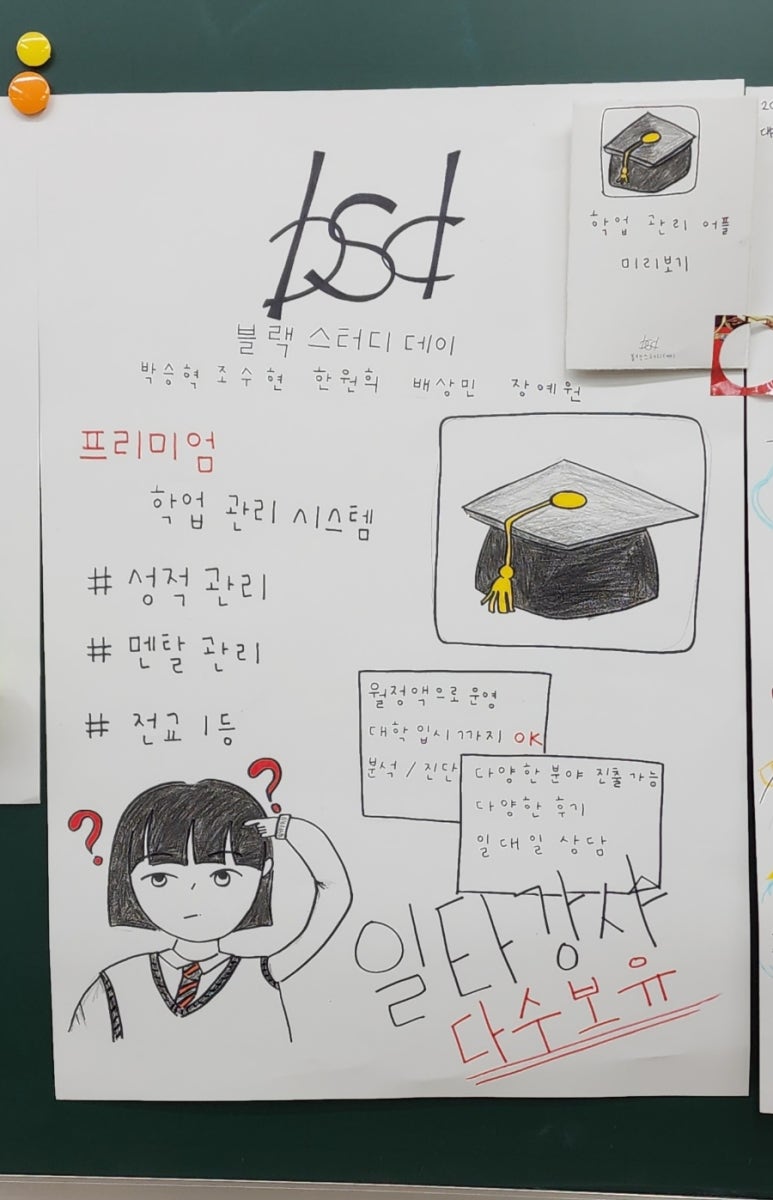 bsd
블랙 스터디 데이
박승혁 조수현 한원희 배상민 장예원
프리미엄
학업 관리 시스템
# 성적 관리
# 멘탈 관리
# 전교 1등
월정액으로 운영
대학 입시까지 OK
분석 / 진단
다양한 분야 진출 가능
다양한 후기
일대일 상담
? ?
일타강사
다수보유
학업 관리 어플
미리보기
bsd
블랙스터디데이